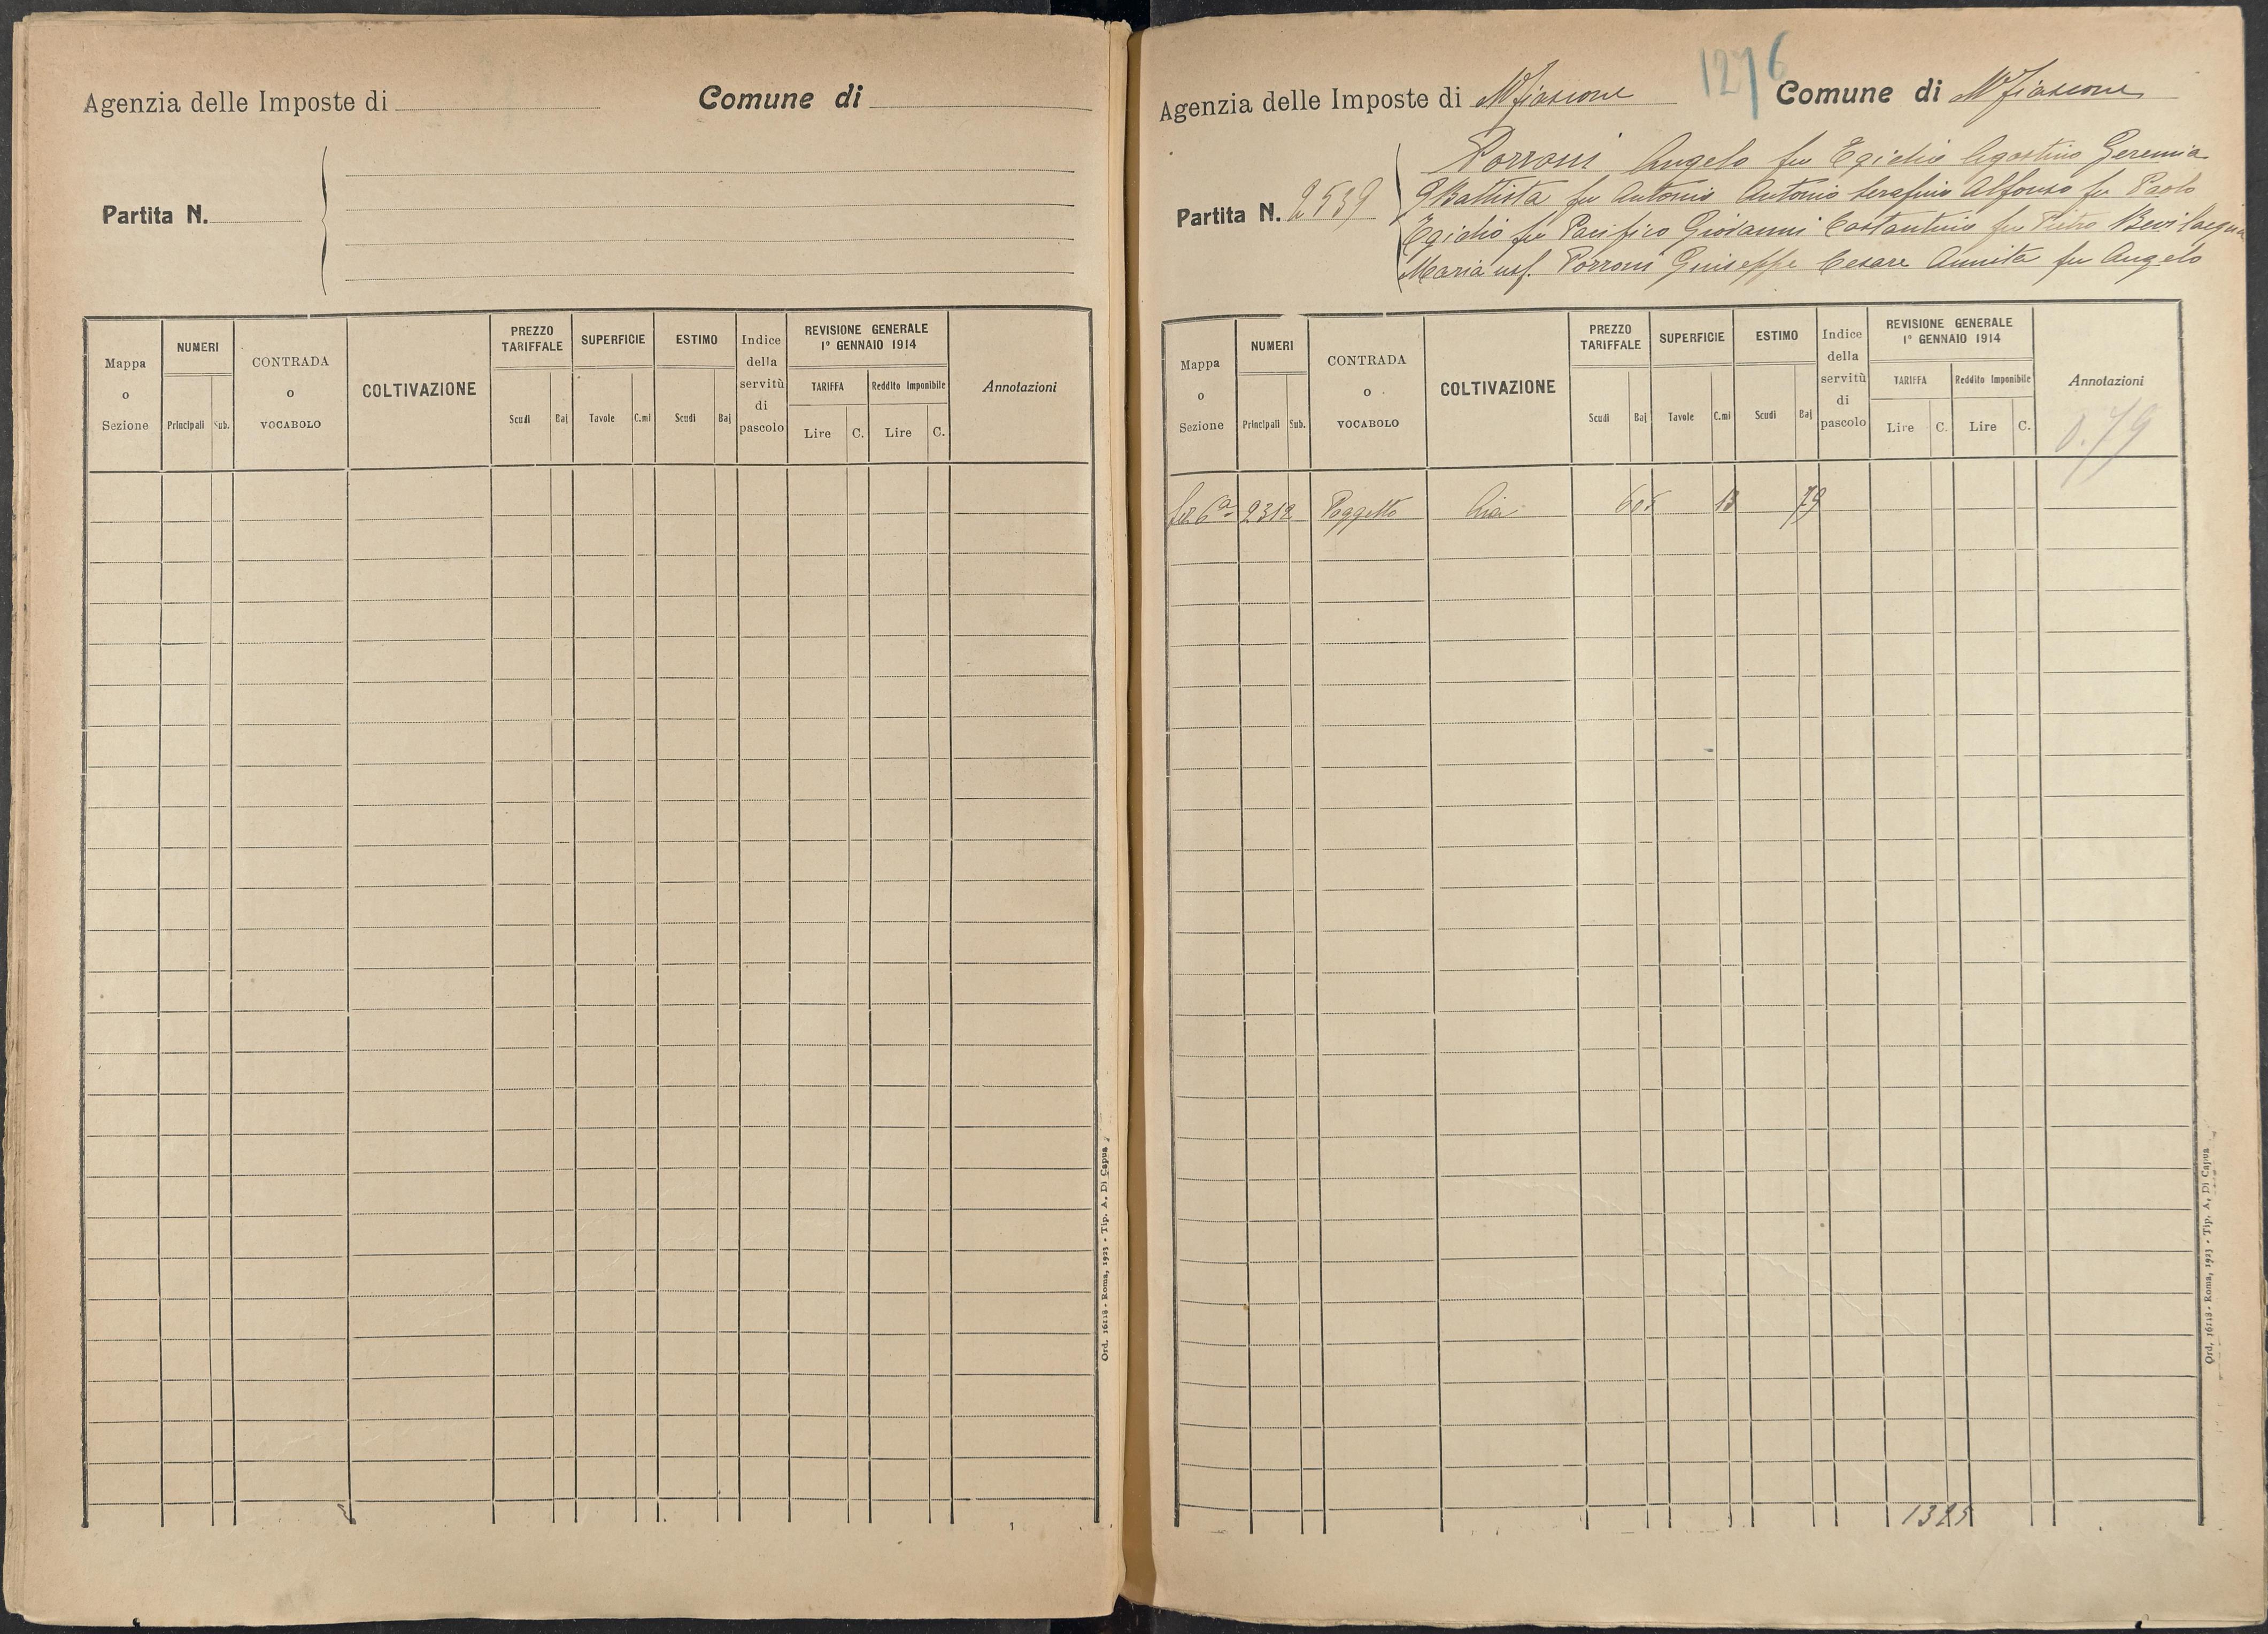 Agenzia delle Imposte di
Comune di
Partita N.
Mappa o Sezione
NUMERI
Principali
Sub.
CONTRADA o VOCABOLO
COLTIVAZIONE
PREZZO TARIFFALE
Scudi
Baj
SUPERFICIE
Tavole
C.mi
ESTIMO
Scudi
Baj
Indice della servitù di pascolo
REVISIONE GENERALE 1° GENNAIO 1914
TARIFFA
Lire
C.
Reddito Imponibile
Lire
C.
Annotazioni
Ord. 16118 - Roma, 1923 - Tip. A. Di Capua
1276
Agenzia delle Imposte di Mfiascone
Comune di Mfiascone
Partita N. 2539
Porroni Angelo fu Egidio Agostino Geremia
GBattista fu Antonio Antonio Serafino Alfonso fu Paolo
Egidio fu Pacifico Giovanni Costantino fu Pietro Bevilacqua
Maria usf. Porroni Giuseppe Cesare Annita fu Angelo
Mappa o Sezione
NUMERI
Principali
Sub.
CONTRADA o VOCABOLO
COLTIVAZIONE
PREZZO TARIFFALE
Scudi
Baj
SUPERFICIE
Tavole
C.mi
ESTIMO
Scudi
Baj
Indice della servitù di pascolo
REVISIONE GENERALE 1° GENNAIO 1914
TARIFFA
Lire
C.
Reddito Imponibile
Lire
C.
Annotazioni
0.79
6a 2312 Poggetto 605 13 79
1325
Ord. 16118 - Roma, 1923 - Tip. A. Di Capua